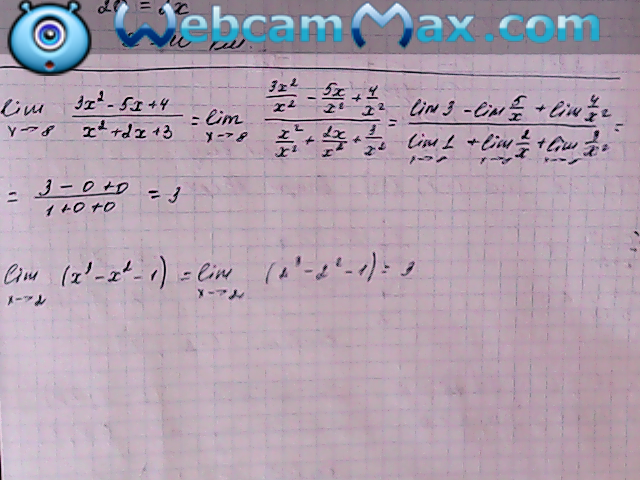 2x
WebcamMax.com
lim x→8 (3x² - 5x + 4)/(x² + 2x + 3) = lim x→8 (3x²/x² - 5x/x² + 4/x²)/(x²/x² + 2x/x² + 3/x²) = (lim 3 - lim 5/x + lim 4/x²)/(lim 1 + lim 2/x + lim 3/x²) =
= (3 - 0 + 0)/(1 + 0 + 0) = 3
lim x→2 (x³ - x² - 1) = lim x→2 (2³ - 2² - 1) = 3